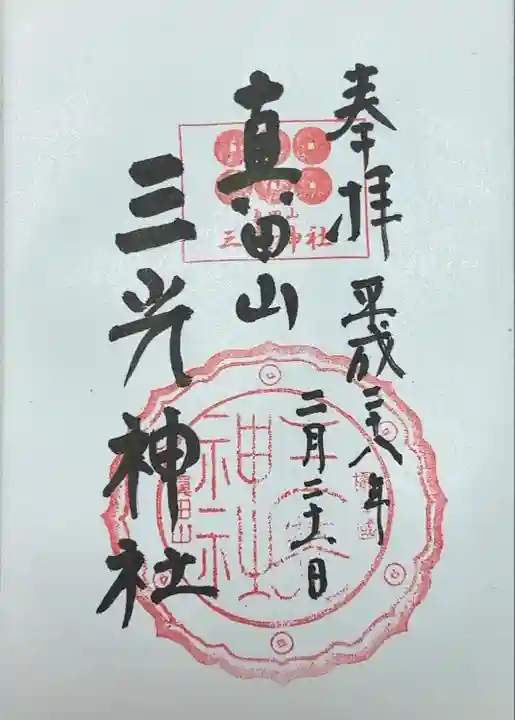 奉拝
平成二十八年
二月二十一日
真田山
三光神社
真田山
三光神社
三光神社
真田山